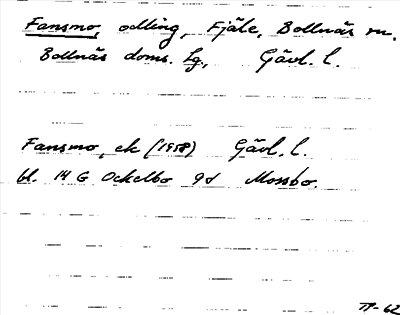 Fansmo, odling, Fjäle, Bollnäs sn.
Bollnäs doms. lg, Gävl. l.
Fansmo, ek (1958) Gävl. l.
bl. 14 G Ockelbo 9d Mossbo.
TP-62